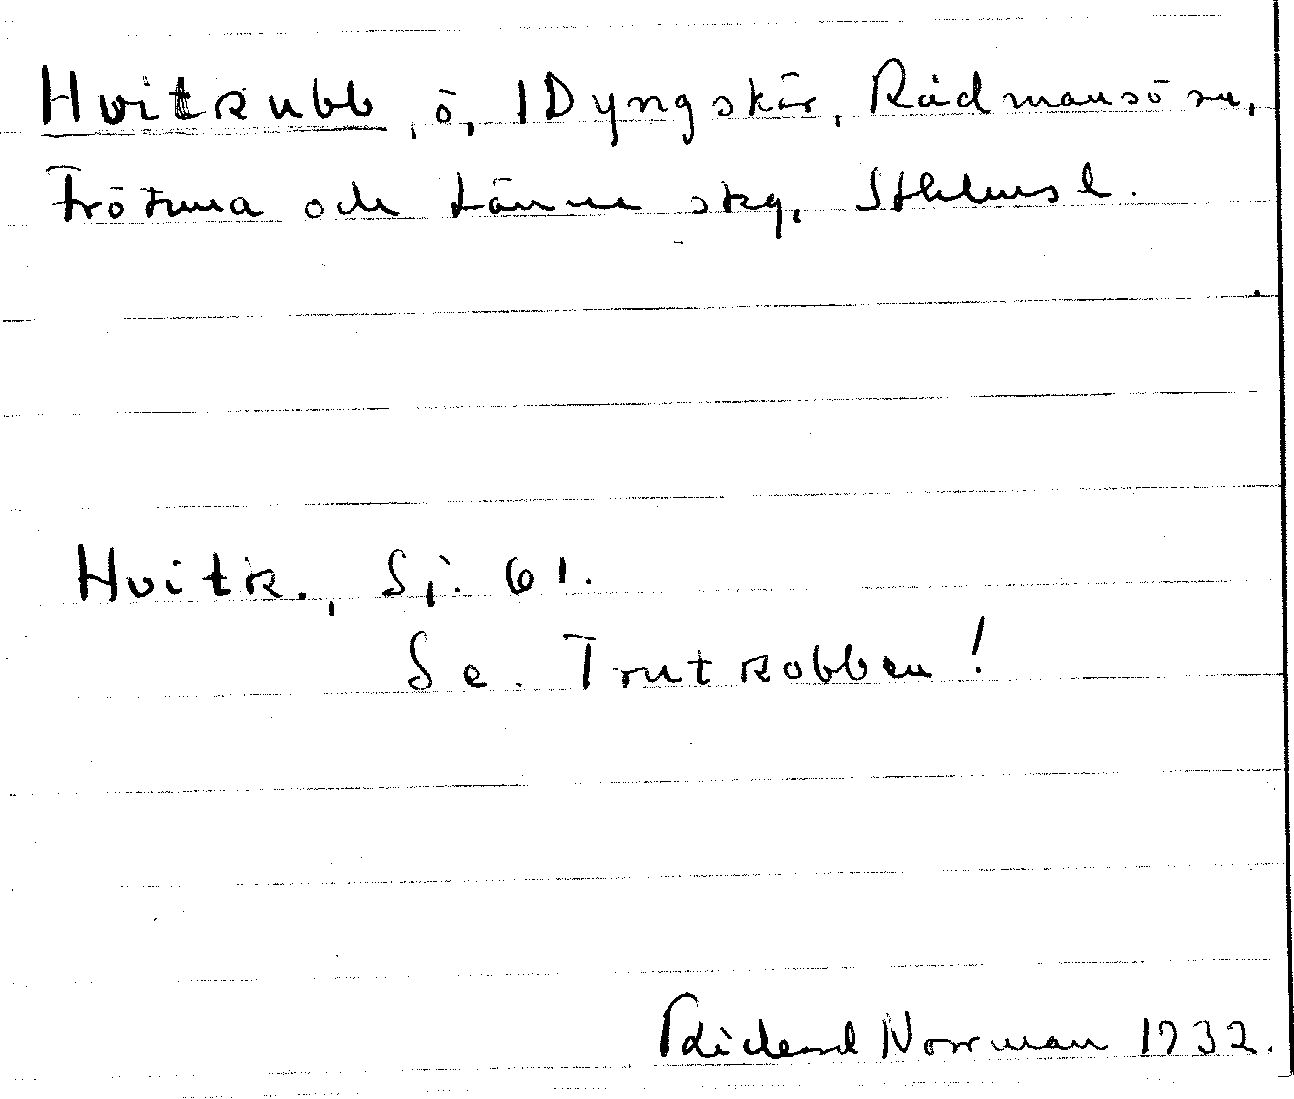 Hvitkubb, ö, 1 Dyngskär, Rådmansö sn,
Frötuna och Länna skg, Sthlms l.
Hvitk., Sj. 61.
Se. Trutkobben!
Norrman 1932.